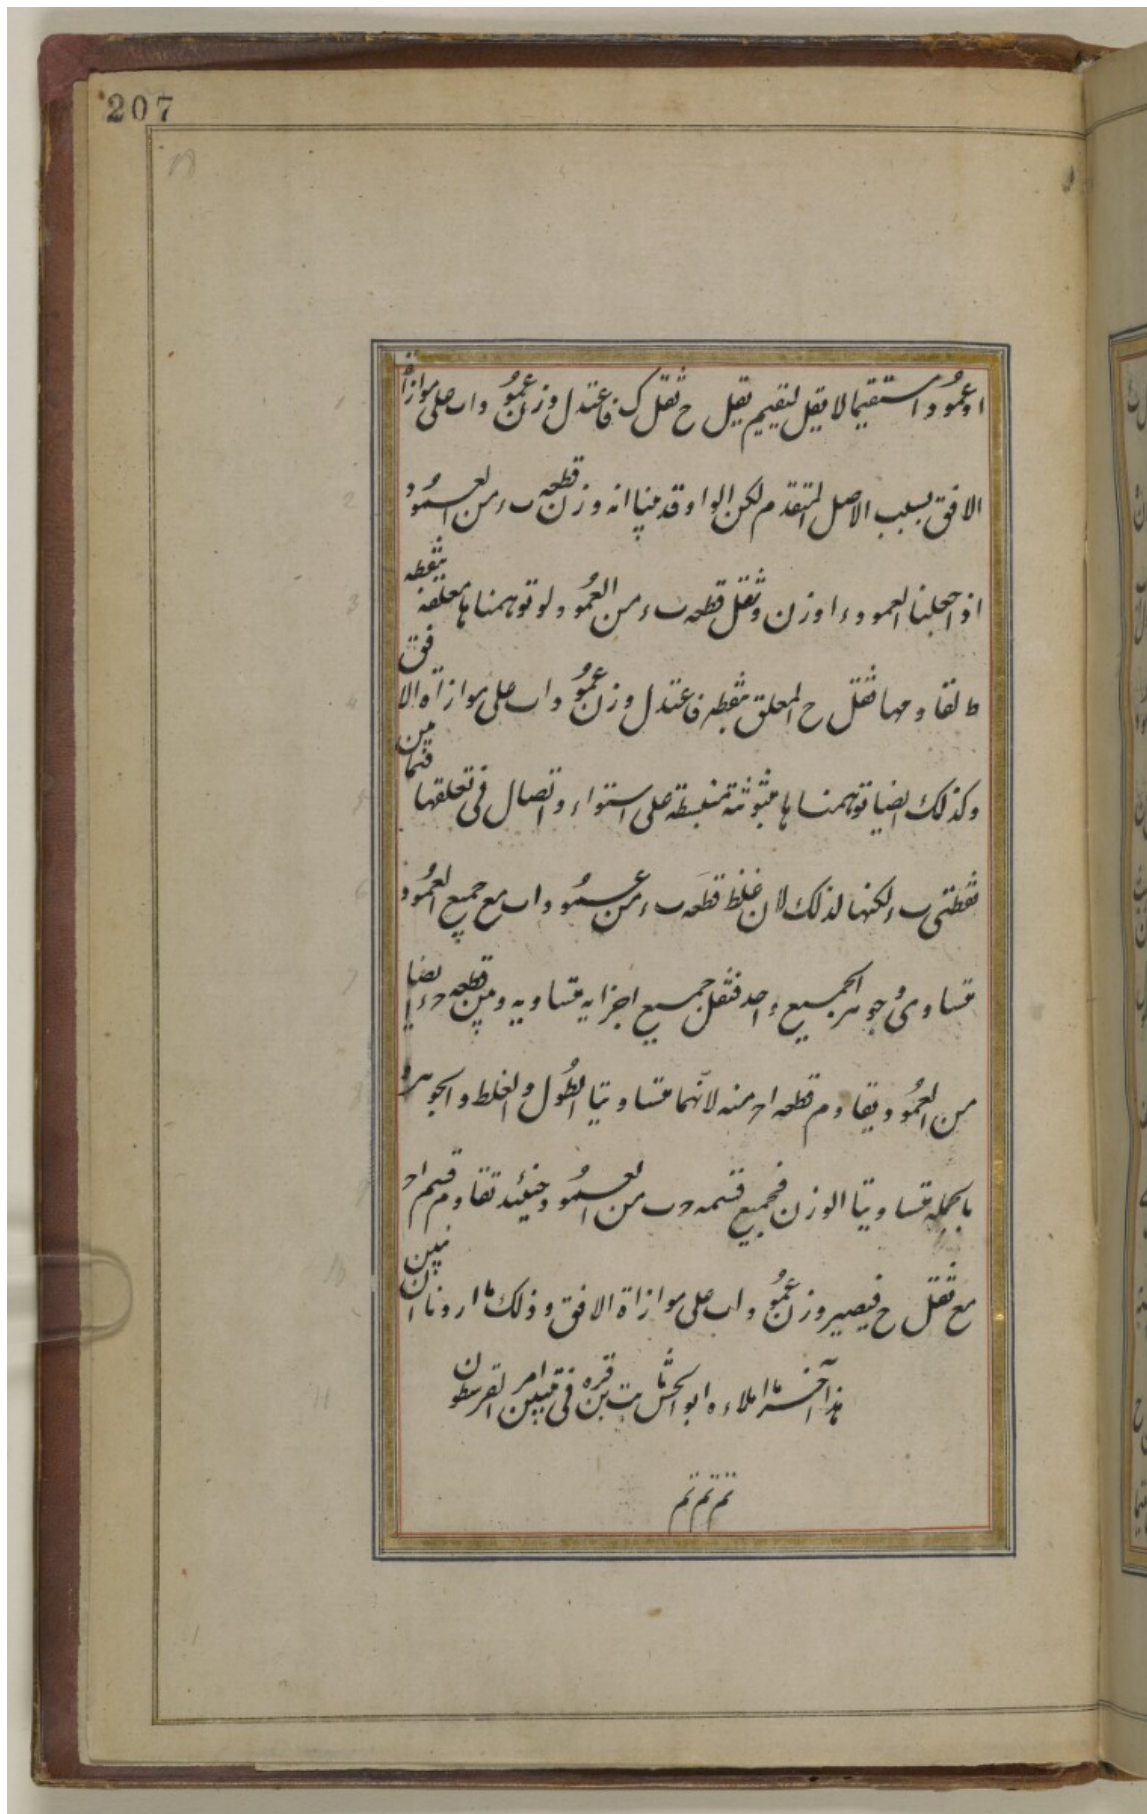 207
او عمودا مستقيما لا يقل لتقيم ثقيل ح ثقل ك فاعتدل وزن عمود اب على موازاة
الافق بسبب الاصل المتقدم لكن الواو قد منا انه وزن قطعه ب ء من العمود
اذ اجعلنا العمود ء اوزن وثقل قطعه ب ء من العمود ولو توهمناها معلقه بنقطه
ط لقاومها ثقل ح المعلق بنقطه فاعتدل وزن عمود اب على موازاة الافق
وكذلك ايضا توهمناها مبثوثة منبسطة على استواء واتصال فى تعلقها فيما بين
نقطتى ب ء لكنها لذلك لان غلظ قطعه ب ء من عمود اب مع جميع العمود
متساوى وجوهر الجميع واحد فثقل جميع اجزايه متساويه وبين قطعه ح ء ايضا
من العمود يقاوم قطعه ا ح منه لانهما متساويتا الطول والغلظ والجوهر و
بالجمله متساويتا الوزن فجميع قسمه ح ب من العمود حينئذ تقاوم قسم ا ح
مع ثقل ح فيصير وزن عمود اب على موازاة الافق وذلك ما اردنا ان نبين
هذا آخر ما املاءه ابو الحسن ثابت بن قره فى تبيين امر القرسطون
تم تم تم